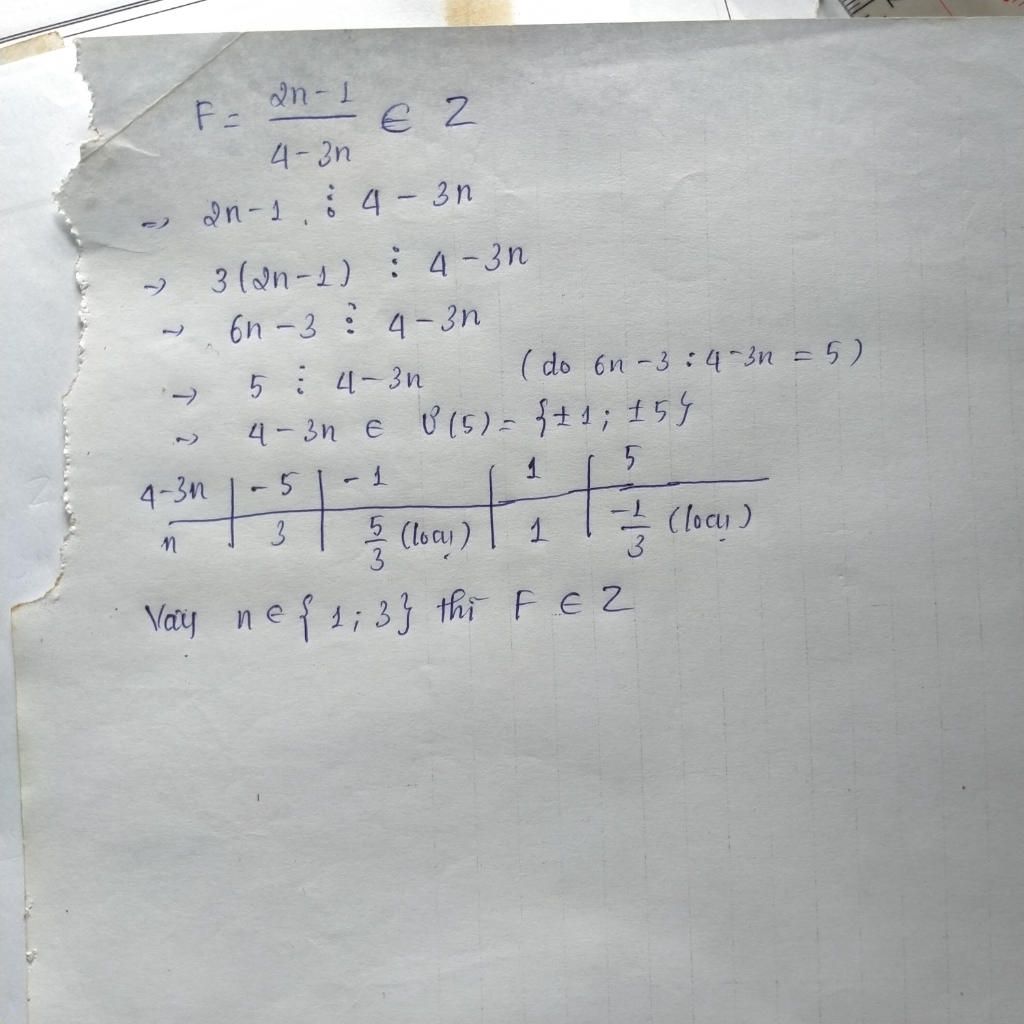 F = \frac{2n-1}{4-3n} ∈ Z
=> 2n-1 ⋮ 4-3n
-> 3(2n-1) ⋮ 4-3n
-> 6n-3 ⋮ 4-3n
-> 5 ⋮ 4-3n (do 6n-3 : 4-3n = 5)
=> 4-3n ∈ Ư(5) = {±1; ±5}
4-3n | -5 | -1 | 1 | 5
n | 3 | \frac{5}{3} (loại) | 1 | \frac{-1}{3} (loại)
Vậy n ∈ {1; 3} thì F ∈ Z